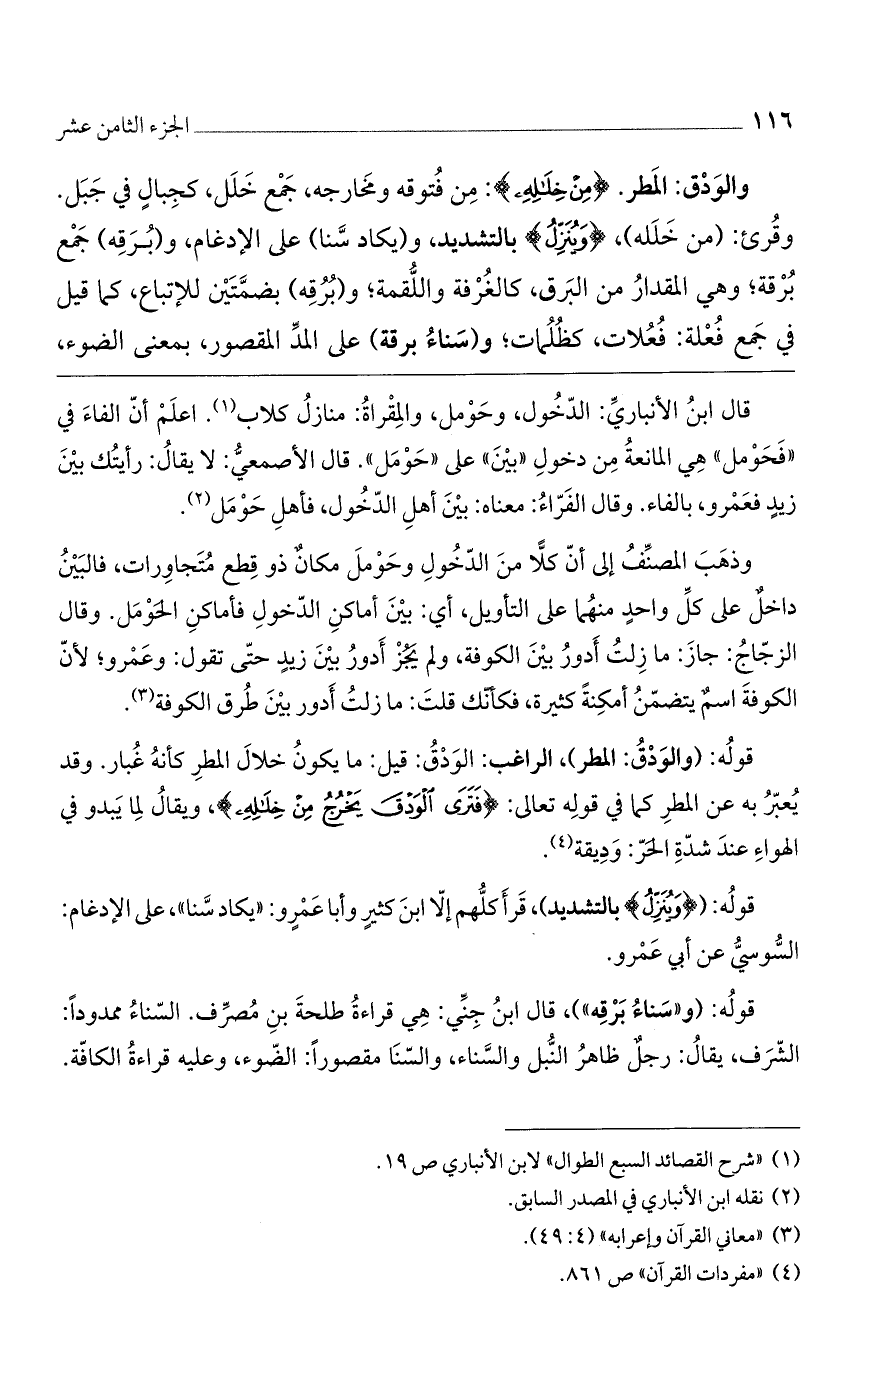 ١١٦ الجزء الثامن عشر
والوَدْق: المَطر. ﴿مِنْ خِلَـٰلِهِۦ﴾: مِن فُتوقه ومَخارجه، جَمْع خَلَل، كجِبالٍ في جَبَل.
وقُرئ: (من خَلَله)، ﴿وَيُنَزِّلُ﴾ بالتشديد، و(يكاد سَّنا) على الإدغام، و(بُـرَقِه) جَمْع
بُرْقة؛ وهي المقدارُ من البَرق، كالغُرْفة واللُّقمة؛ و(بُرُقِه) بضمَّتَيْن للإتباع، كما قيل
في جَمع فُعْلة: فُعُلات، كظُلُمات؛ و(سَناءُ برقة) على المدِّ المقصور، بمعنى الضوء،
قال ابنُ الأنباريِّ: الدّخُول، وحَوْمل، والمِقْراةُ: منازلُ كلاب(١). اعلَمْ أنّ الفاءَ في
«فَحَوْمل» هِي المانعةُ مِن دخولِ «بيْنَ» على «حَوْمَل». قال الأصمعيُّ: لا يقالُ: رأيتُك بيْنَ
زيدٍ فعَمْرو، بالفاء. وقال الفَرّاءُ: معناه: بيْنَ أهلِ الدّخُول، فأهلِ حَوْمَل(٢).
وذهَبَ المصنِّفُ إلى أنّ كلًّا منَ الدّخُولِ وحَوْملَ مكانٌ ذو قِطعٍ مُتَجاوِرات، فالبَيْنُ
داخلٌ على كلِّ واحدٍ منهُما على التأويل، أي: بيْنَ أماكنِ الدّخولِ فأماكنِ الحَوْمَل. وقال
الزجّاجُ: جازَ: ما زِلتُ أدورُ بيْنَ الكوفة، ولم يَجُزْ أَدورُ بيْنَ زيدٍ حتّى تقول: وعَمْرو؛ لأنّ
الكوفةَ اسمٌ يتضمّنُ أمكِنةً كثيرة، فكأنّك قلتَ: ما زلتُ أدور بيْنَ طُرق الكوفة(٣).
قولُه: (والوَدْقُ: المطر)، الراغب: الوَدْقُ: قيل: ما يكونُ خلالَ المطرِ كأنهُ غُبار. وقد
يُعبّرُ به عن المطرِ كما في قولِه تعالى: ﴿فَتَرَى ٱلْوَدْقَ يَخْرُجُ مِنْ خِلَـٰلِهِۦ﴾، ويقالُ لِما يَبدو في
الهواءِ عندَ شدّةِ الحَرّ: وَدِيقة(٤).
قولُه: (﴿وَيُنَزِّلُ﴾ بالتشديد)، قَرأ كلُّهم إلّا ابنَ كثيرٍ وأبا عَمْرٍو: «يكاد سَّنا»، على الإدغام:
السُّوسيُّ عن أبي عَمْرو.
قولُه: (و«سَناءُ بَرْقِه»)، قال ابنُ جِنِّي: هِي قراءةُ طلحةَ بنِ مُصرِّف. السّناءُ ممدوداً:
الشَّرَف، يقالُ: رجلٌ ظاهرُ النُّبل والسَّناء، والسّنَا مقصوراً: الضّوء، وعليه قراءةُ الكافّة.
(١) «شرح القصائد السبع الطوال» لابن الأنباري ص ١٩.
(٢) نقله ابن الأنباري في المصدر السابق.
(٣) «معاني القرآن وإعرابه» (٤: ٤٩).
(٤) «مفردات القرآن» ص ٨٦١.